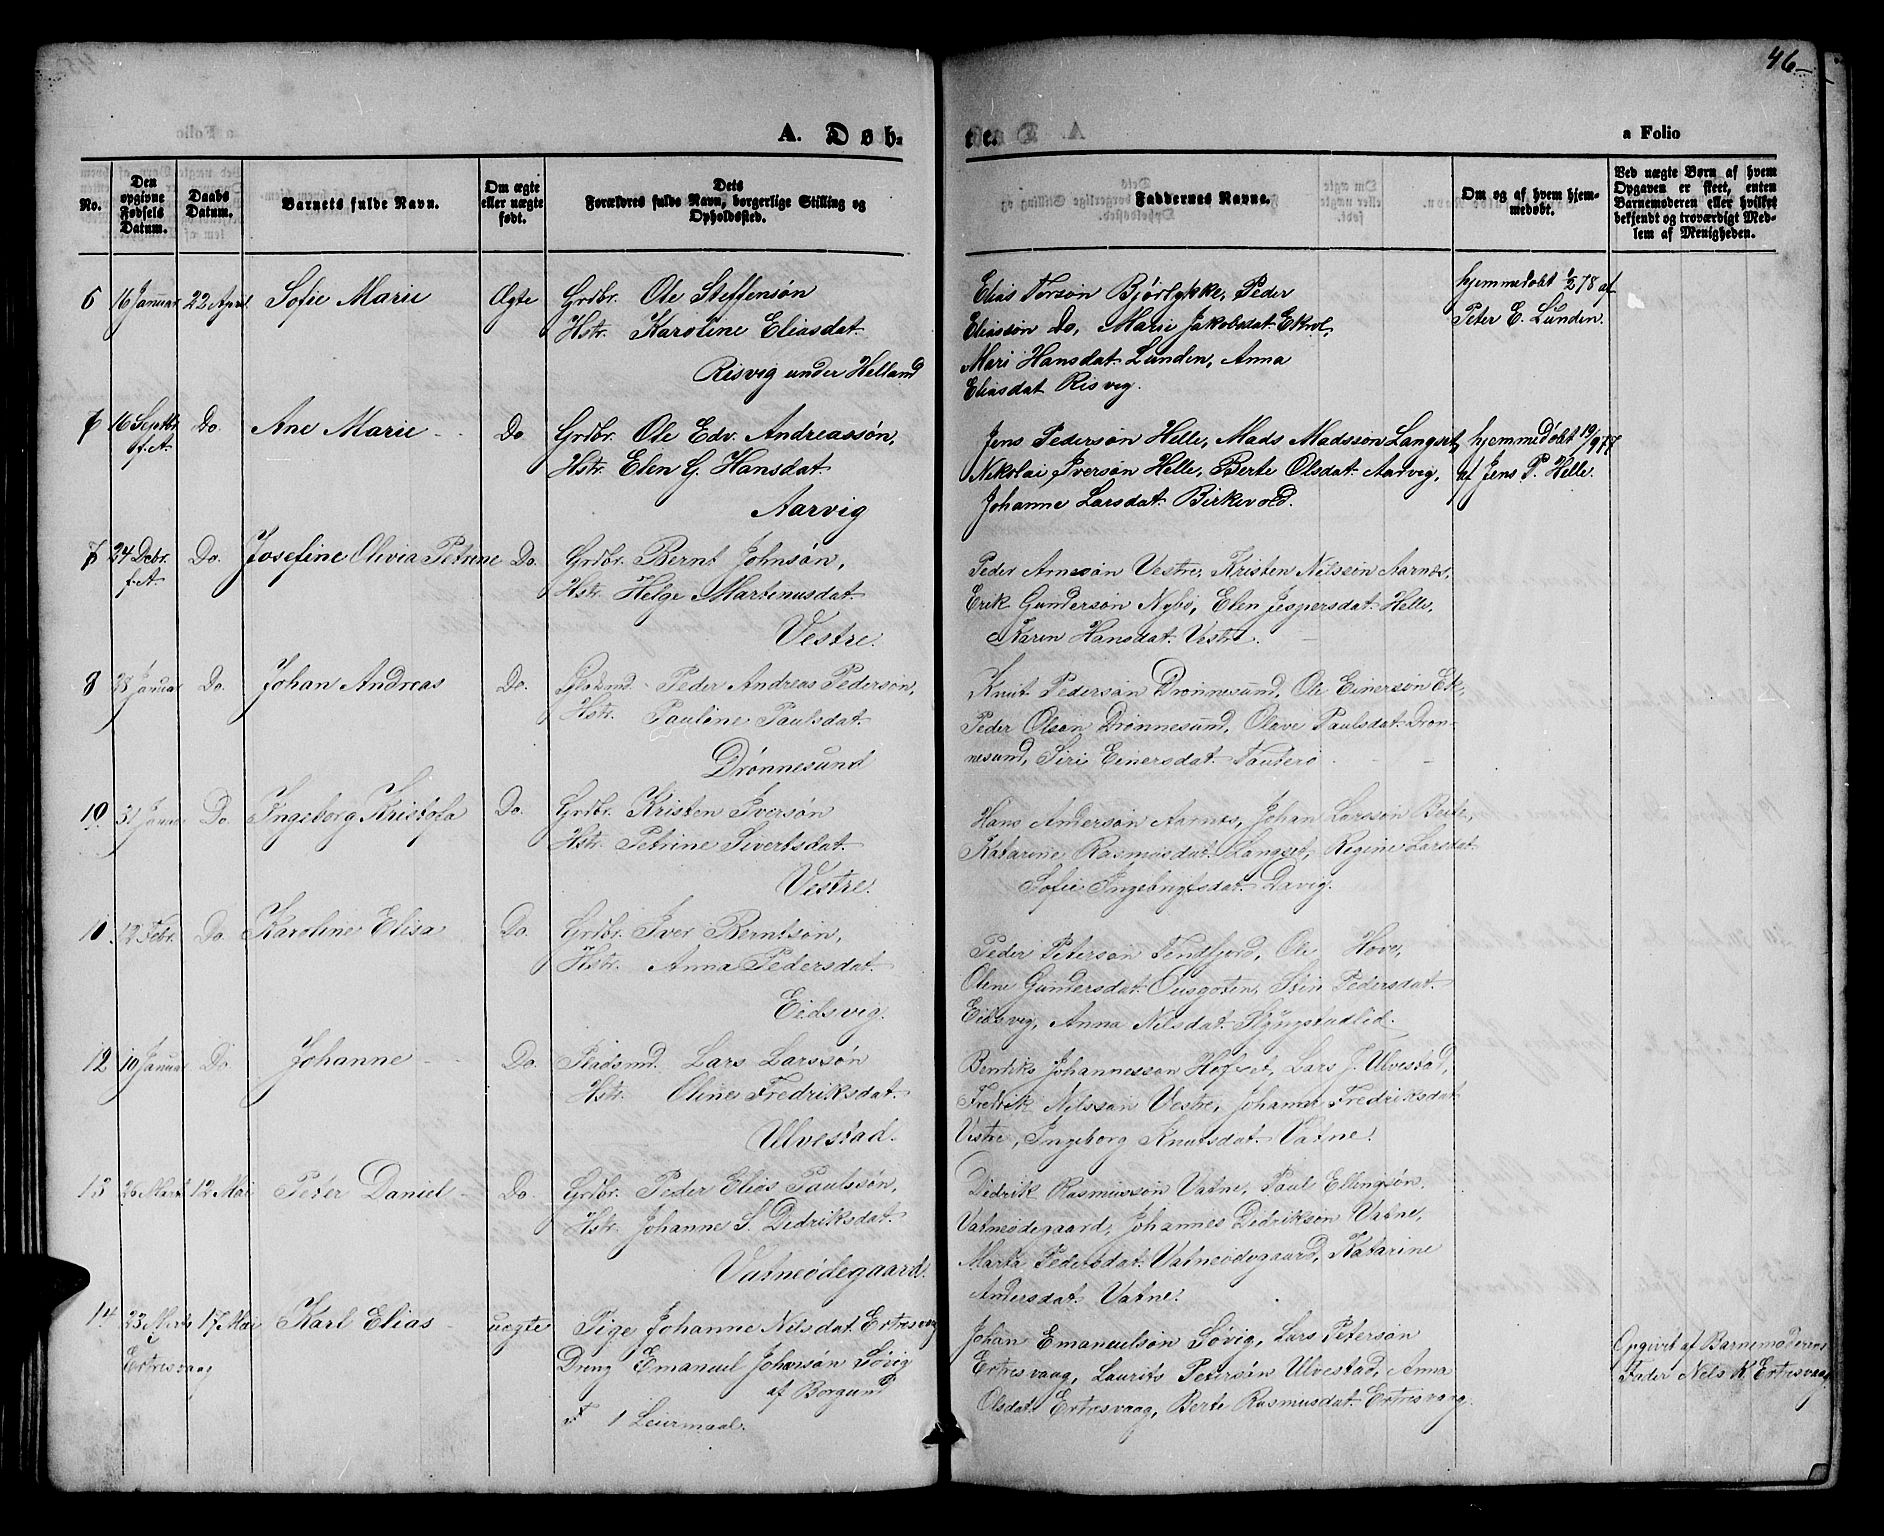 46
A. Døb-
te.
a Folio
No.
Den opgivne Fødsels Datum.
Daabs Datum.
Barnets fulde Navn.
Om ægte eller uægte født.
Dets Forældres fulde Navn, borgerlige Stilling og Opholdssted.
Faddernes Navne.
Om og af hvem hjemmedøbt.
Ved uægte Børn af hvem Opgaven er skeet, enten Barnemoderen eller hvilket bekjendt og troværdigt Medlem af Menigheden.
5 16 Januar 22 April Sofie Marie Ægte Grdbr. Ole Steffensøn
Hstr. Karoline Eliasdat.
Risvig under Helland
Elias Torsøn Bjørlykke, Peder
Eliassøn Do, Marie Jakobsdat. Ekrol,
Mari Hansdat Lunden, Anna
Eliasdat Risvig.
hjemmedøbt 1/2 78 af
Peter E. Lunden.
6 16 Septbr. f.A. Do. Ane Marie Do Grdbr. Ole Edv. Andreassøn,
Hstr. Elen G. Hansdat.
Aarvig
Jens Pedersøn Helle, Mads Madssøn Langset,
Nikolai Iversøn Helle, Berte Olsdat. Aarvig,
Johanne Larsdat. Birkevold.
hjemmedøbt 19/9 77
af Jens P. Helle.
7 24 Debr. f.A. Do. Josefine Olivia Petrine Do. Grdbr. Bernt Johnsøn,
Hstr. Helge Martinusdat.
Vestre.
Peder Arnesøn Vestre, Kristen Nilssøn Aarnes,
Erik Gundersøn Nybø, Elen Jespersdat. Helle,
Karen Hansdat. Vestre.
8 23 Januar Do. Johan Andreas Do. Peder Andreas Pedersøn,
Hstr. Pauline Paulsdat.
Drønnesund
Knut Pedersøn Drønnesund, Ole Einersøn Ek,
Peder Olsøn Drønnesund, Olave Paulsdat. Drøn-
nesund, Siri Einersdat. Tautero
10 31 Januar Do. Ingeborg Kristofa Do. Grdbr. Kristen Iversøn
Hstr. Petrine Sivertsdat.
Vestre.
Hans Andersøn Aarnes, Johan Larssøn Beite,
Katarine Rasmusdat. Langset, Regine Larsdat.
Sofie Ingebrigtsdat. Davig.
12 Febr. Do. Karoline Elisa Do. Grdbr. Iver Berntsøn,
Hstr. Anna Pedersdat.
Eidsvig.
Peder Petersøn Tendfjord, Ole Hove,
Olene Gundersdat. Pedersdat.
Eidsvig, Anna Nilsdat.
12 10 Januar Do Johanne Do. Pladsmd. Lars Larssøn
Hstr. Oline Fredriksdat.
Ulvestad.
Bendiks Johannessøn Hofset, Lars J. Ulvestad,
Fredrik Nilssøn Vestre, Johanne Fredriksdat
Vestre, Ingeborg Knutsdat. Vatne.
13 26 Marts 12 Mai Peter Daniel Do. Grdbr. Peder Elias Paulssøn,
Hstr. Johanne S. Didriksdat.
Vatneødegaard.
Didrik Rasmussøn Vatne, Paul Ellingsøn
Vatneødegaard, Johannes Didriksøn Vatne,
Marta Pedersdat. Vatneødegaard, Katarine
Andersdat. Vatne.
14 23 Marts i Ertresvaag 17 Mai Karl Elias uægte Pige Johanne Nilsdat. Ertresvaag
Dreng Emanuel Johansøn Søvig
af Borgund
F 1 Leiermaal.
Johan Emanuelsøn Søvig, Lars Petersøn
Ertresvaag, Laurits Petersøn Ulvestad, Anna
Olsdat. Ertresvaag, Berte Rasmusdat. Ertresvaag.
Opgivet af Barnemoderens
Fader Nels K. Ertresvaag